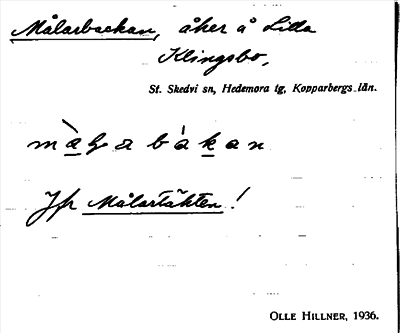 Målarbackan, åker å Lilla
Klingsbo,
St. Skedvi sn, Hedemora tg, Kopparbergs län.
Jfr Målartäkten!
OLLE HILLNER, 1936.